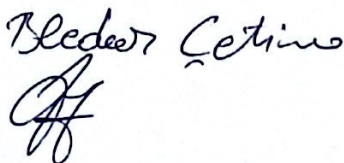 Bledar Çetino